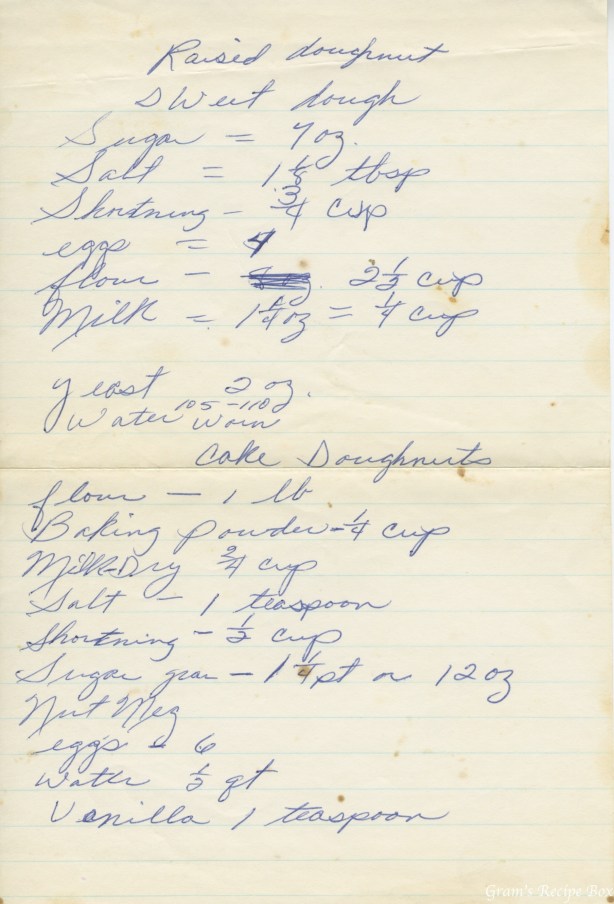 Raised doughnut
Sweet dough
Sugar = 7 oz.
Salt = 1 1/8 tbsp
Shortning - 3/4 cup
eggs = 4
flour - 2 1/2 cup
Milk = 1 1/4 oz = 1/4 cup
yeast 2 oz.
Water 105-110 Worm
Cake Doughnuts
flour - 1 lb
Baking powder - 1/4 cup
Milk-Dry 3/4 cup
Salt - 1 teaspoon
Shortning - 1/2 cup
Sugar gran - 1 1/4 pt or 12 oz
Nut Meg
eggs - 6
Water 1/2 qt
Vanilla 1 teaspoon
Gram's Recipe Box